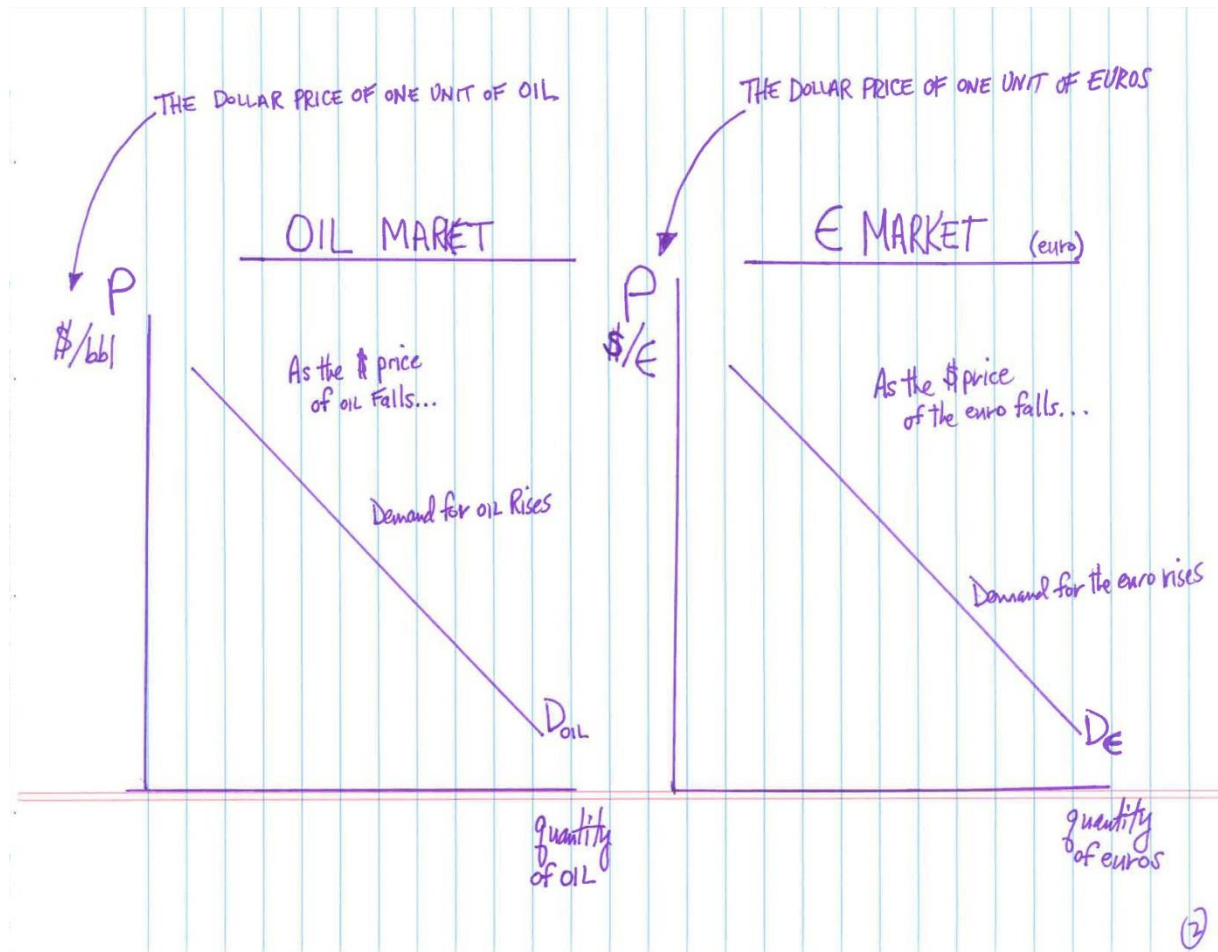 THE DOLLAR PRICE OF ONE UNIT OF OIL
OIL MARKET
P
$/bbl
As the $ price
of OIL Falls...
Demand for OIL Rises
D OIL
quantity
of OIL
THE DOLLAR PRICE OF ONE UNIT OF EUROS
€ MARKET (euro)
P
$/€
As the $ price
of the euro falls...
Demand for the euro rises
D€
quantity
of euros